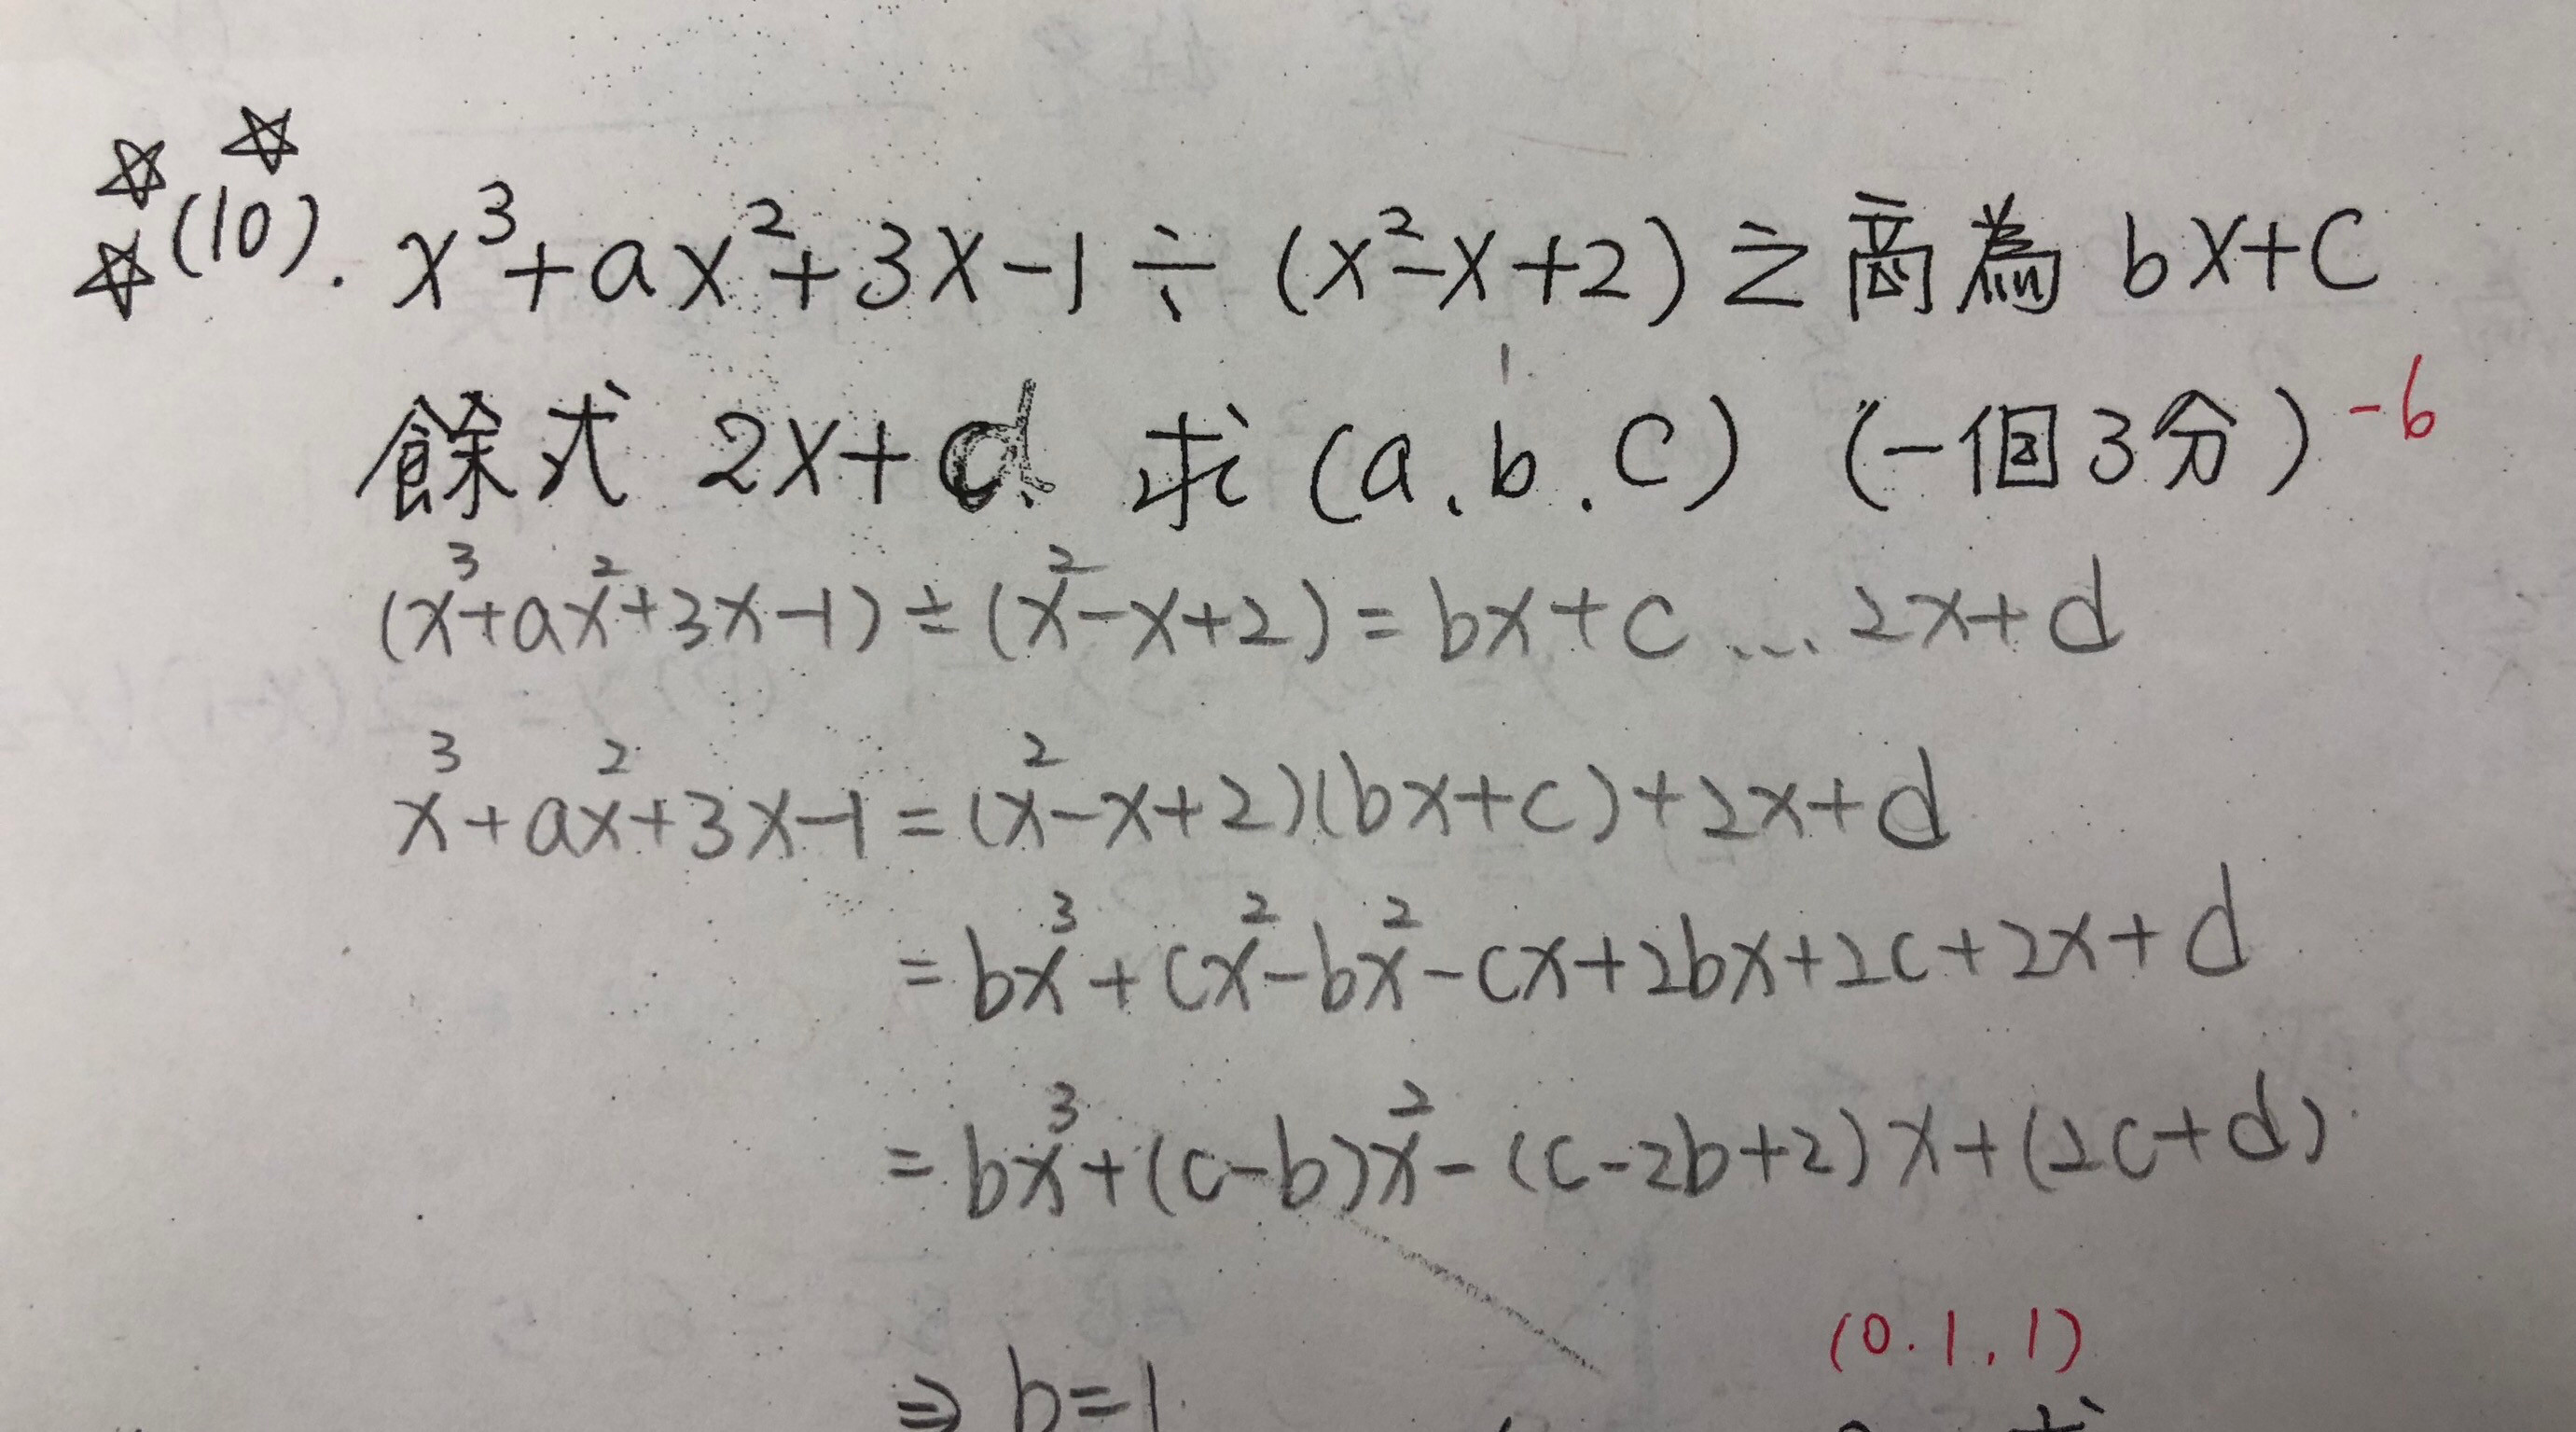 ☆☆☆(10). x³+ax²+3x-1÷(x²-x+2)之商為 bx+c
餘式 2x+d. 求(a.b.c) (一個3分) -6
(x³+ax²+3x-1)÷(x²-x+2)=bx+c...2x+d
x³+ax²+3x-1=(x²-x+2)(bx+c)+2x+d
=bx³+cx²-bx²-cx+2bx+2c+2x+d
=bx³+(c-b)x²-(c-2b+2)x+(2c+d)
(0.1.1)
⇒ b=1